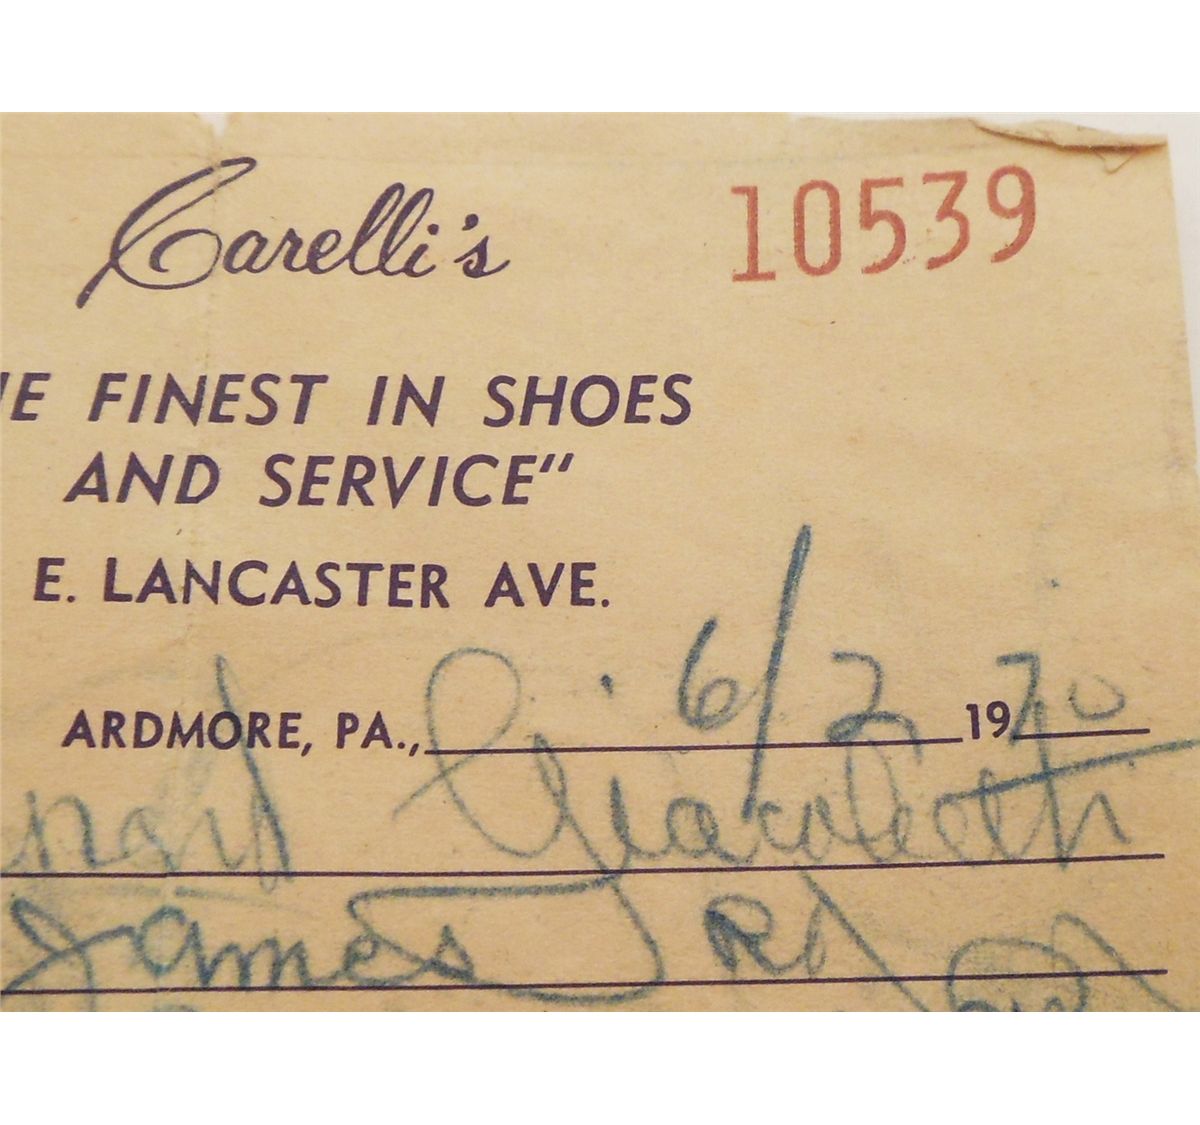 Carelli's 10539
FINEST IN SHOES
AND SERVICE"
E. LANCASTER AVE.
ARDMORE, PA., 6/2 1970
James Rd